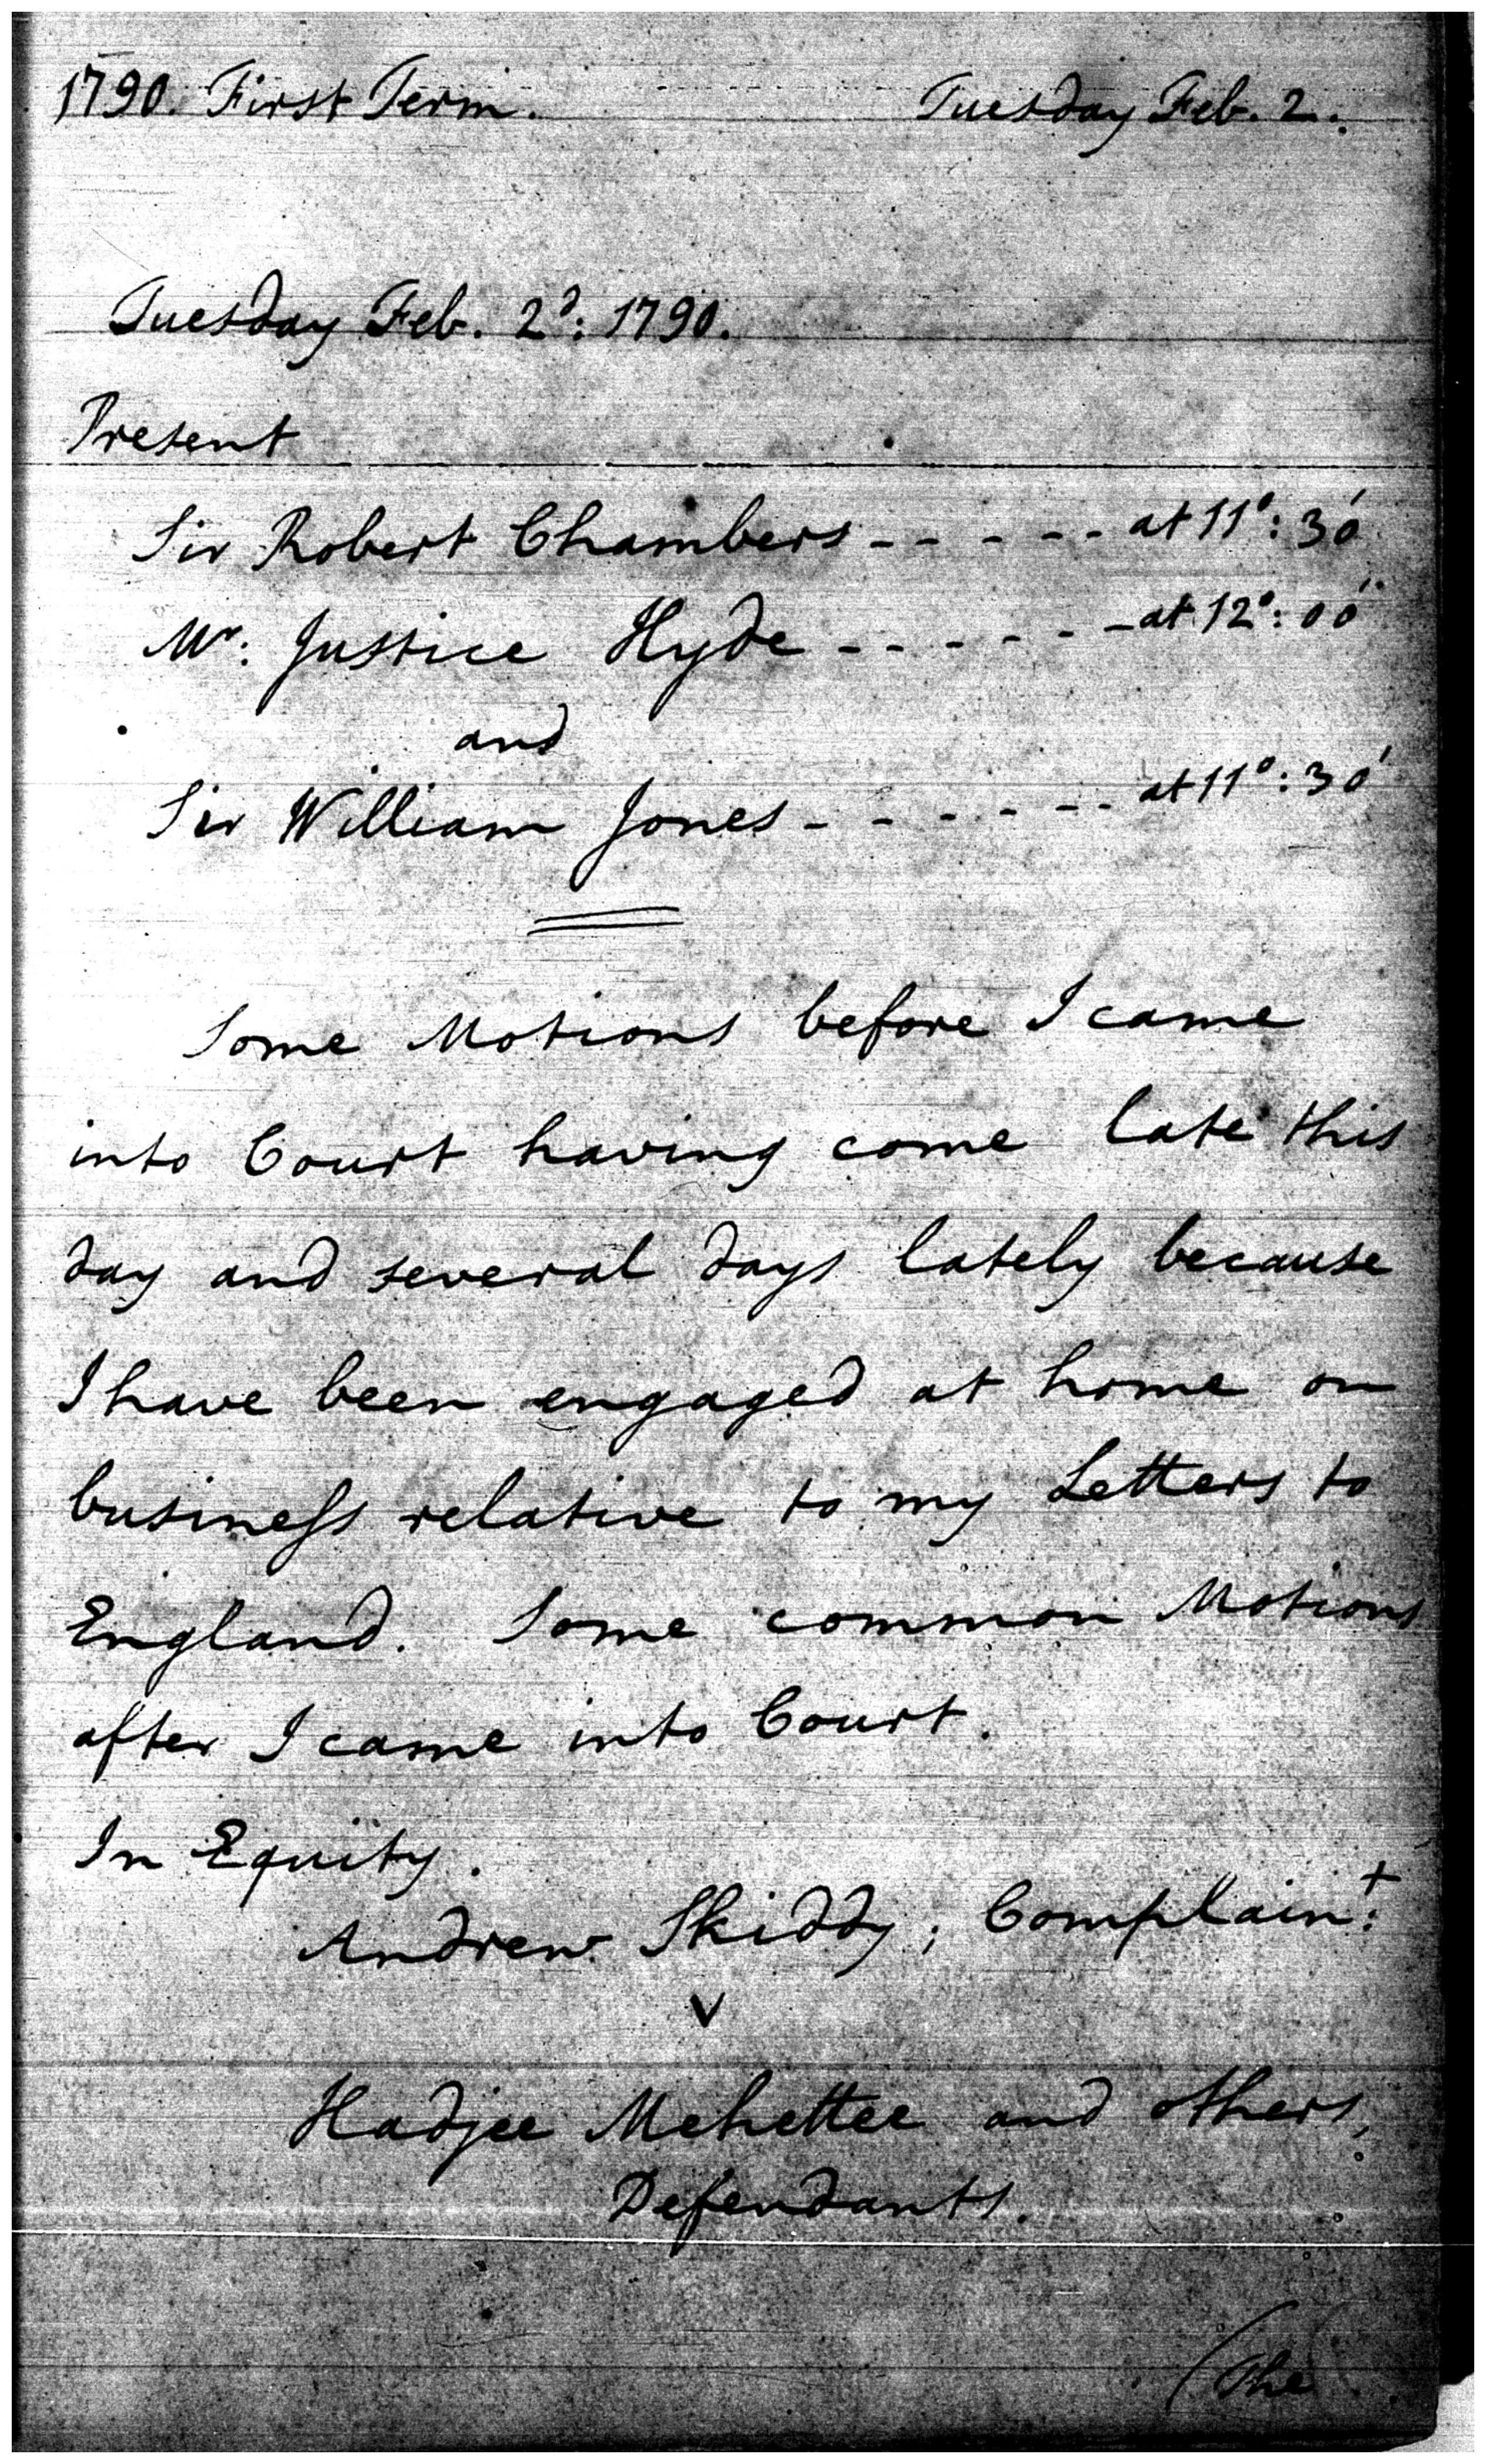 1790. First Term. Tuesday Feb. 2.
Tuesday Feb. 2d: 1790.
Present
Sir Robert Chambers - - - - - at 11°: 30'
Mr: Justice Hyde - - - - - - at 12°: 00'
and
Sir William Jones - - - - - - at 11°: 30'
Some Motions before I came
into Court having come late this
day and several days lately because
I have been engaged at home on
business relative to my Letters to
England. Some common Motions
after I came into Court.
In Equity.
Andrew Skiddy; Complaint:
v
Hadjee Mehettee and others,
Defendants.
(The